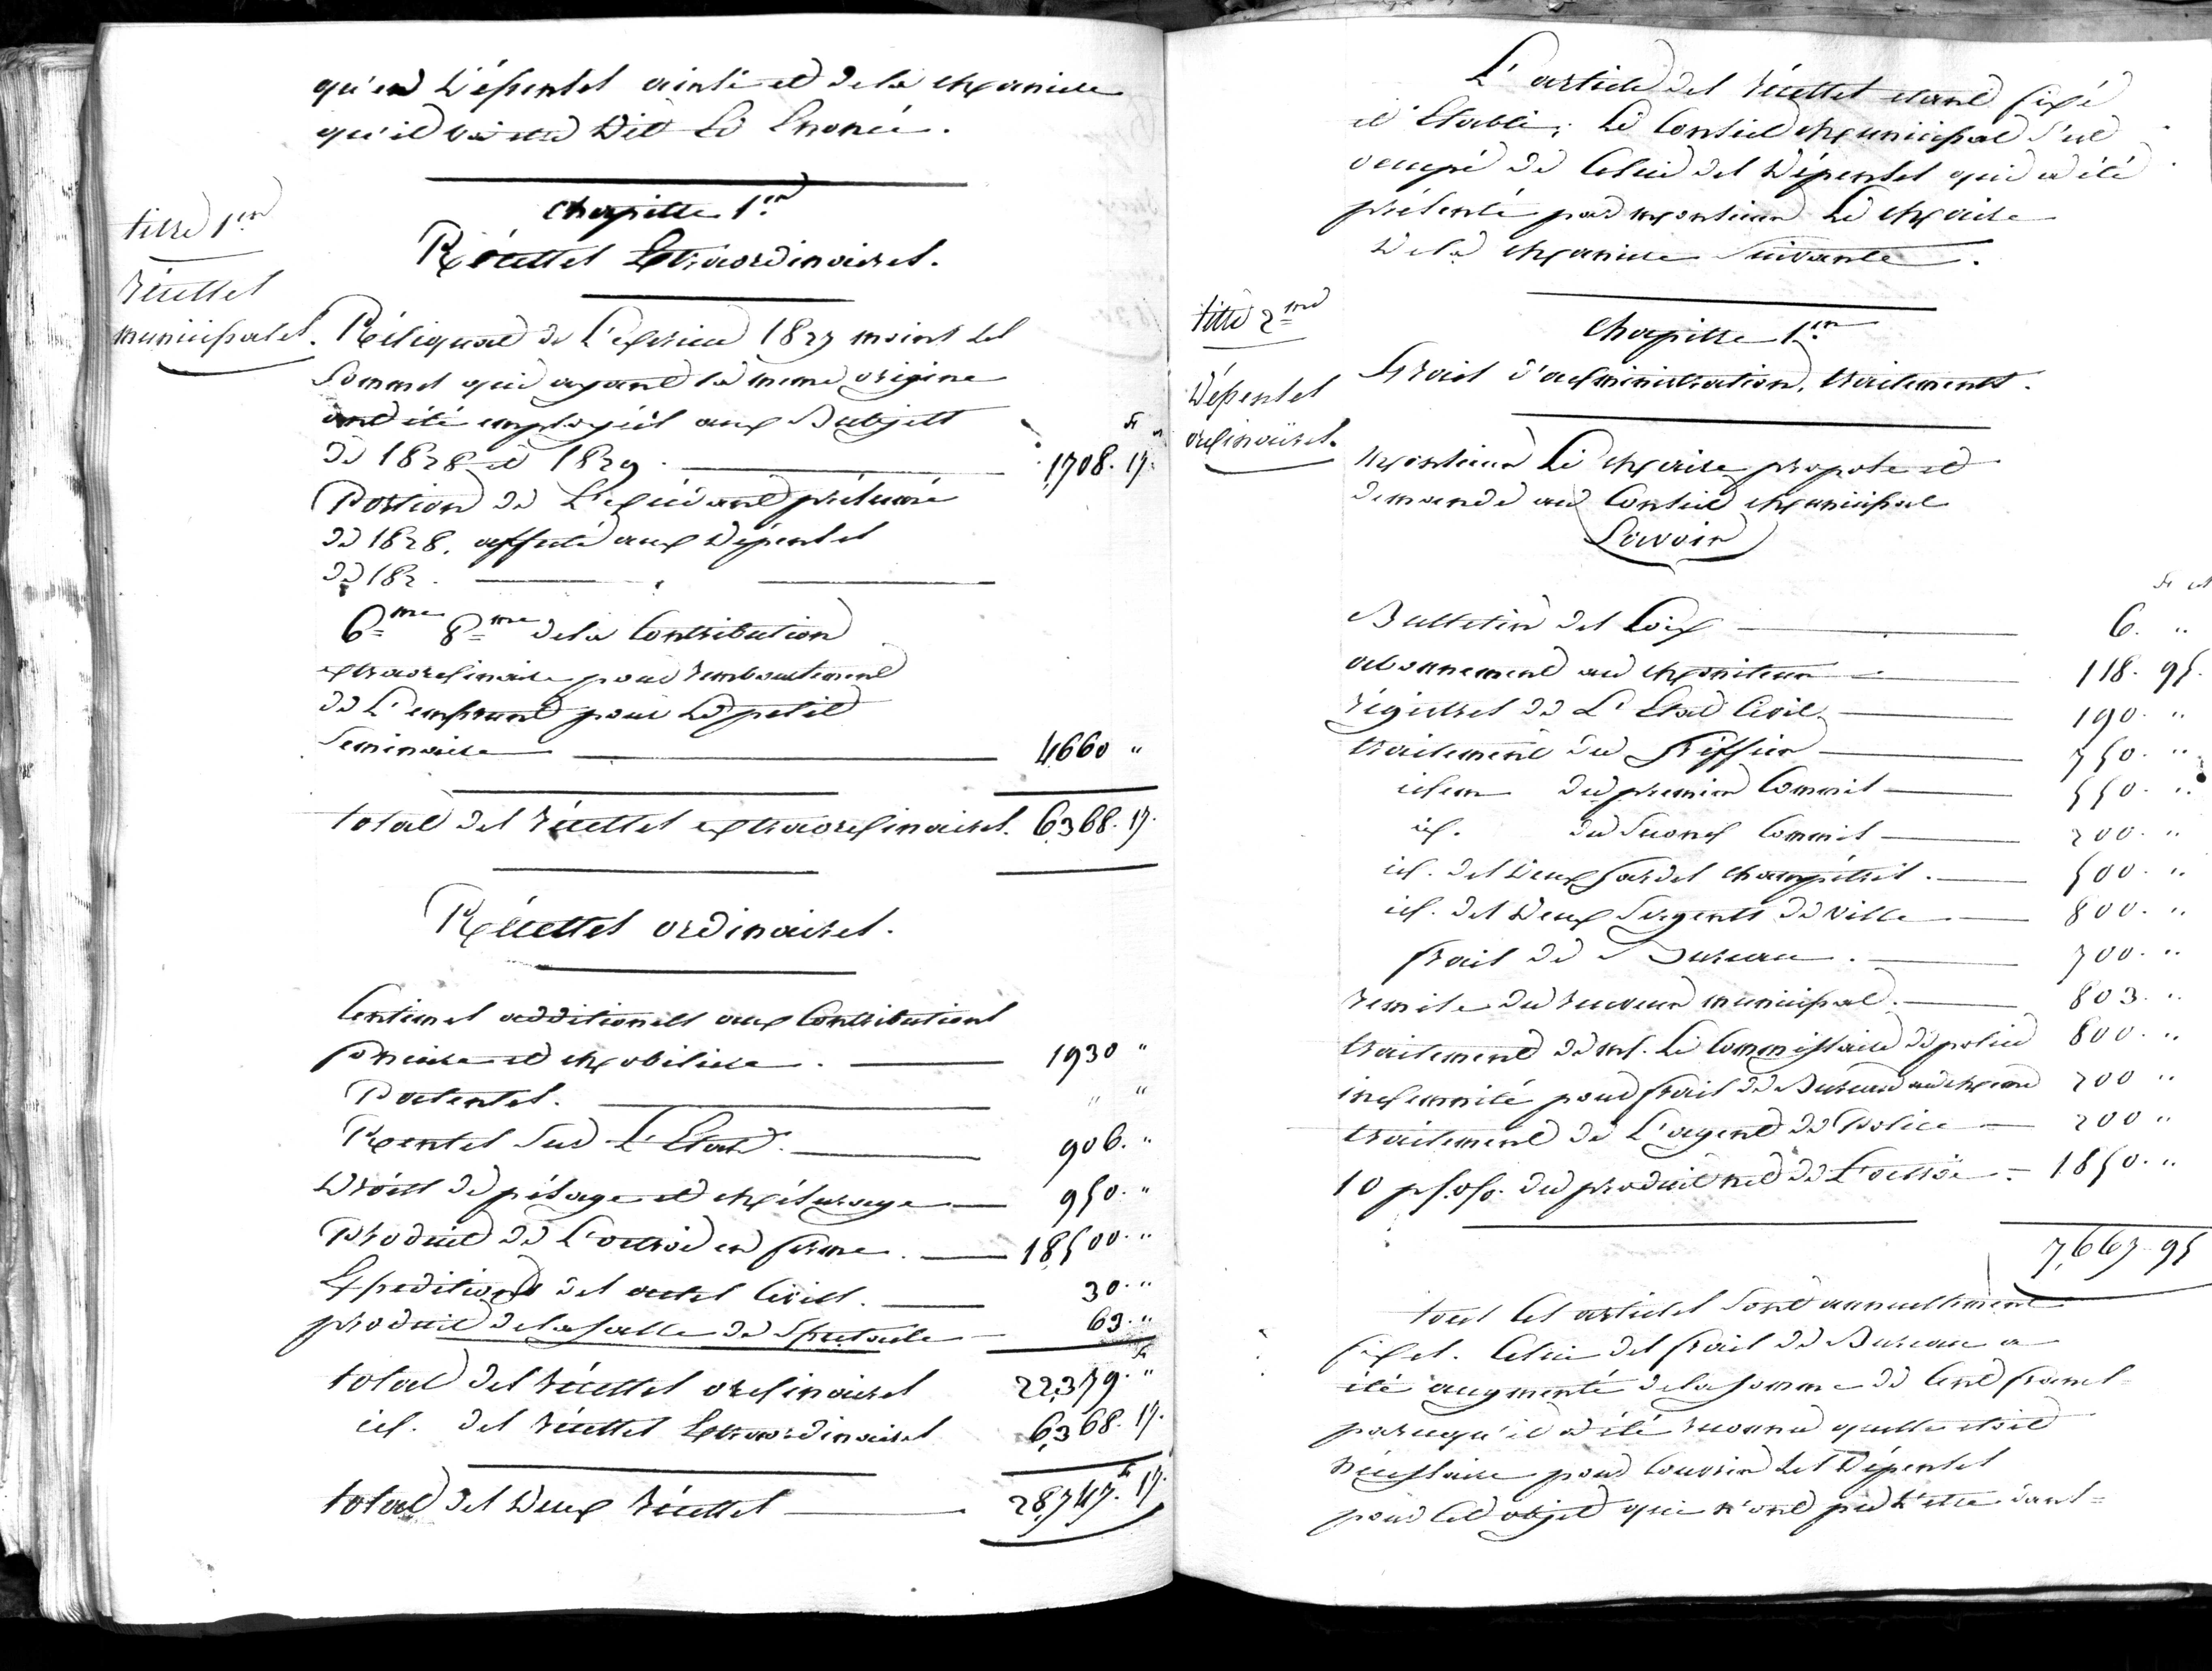 qu'en Dépenses ainsi et de la maniere
qu'il va etre Dit Et Enoncé.
titre 1er
Récettes
municipales.
Chapitre 1er
Récettes Extraordinaires.
Réliquat de L'exercice 1827 moins les
Sommes qui ayant la meme origine
ont été employées aux Budjets
de 1828 et 1829. 1,708. 17.
Portion de L'excédant présumé
de 1828. affecté aux Dépenses
de 182 .
6me 8me de la Contribution
extraordinaire pour remboursement
de L'emprunt pour Le petit
Seminaire 4,660 "
total des récettes extraordinaires. 6,368. 17.
Récettes ordinaires.
Centimes additionells aux Contributions
fonciere et Mobiliere. 1930 "
Patentes. " "
Rentes Sur L'Etat. 906. "
Droits de pésage et Mésurage 950. "
Produit de L'octroi en ferme. 18,500. "
Expeditions des actes Civils. 30. "
produit de la Salle de Spectacle 63. "
total des récettes ordinaires 22,379. "
id. des récettes Extraordinaires 6,368. 17.
total des Deux récettes 28,747. 17.
L'article des récettes etant fixé
et Etabli; Le Conseil Municipal S'est
occupé de Celui des Dépenses qui a été
présenté par Monsieur Le Maire
De la Maniere Suivante.
titre 2me
Dépenses
ordinaires.
Chapitre 1er
Frais d'administration, traitements.
Monsieur Le Maire propose et
demande au Conseil Municipal
Savoir
fr cs
Bulletin des Loix 6. "
abonnement au Moniteur 118. 95.
régistres de L'Etat Civil. 190. "
traitement du Greffier 750. "
idem du premier Commis 550. "
id. du Second Commis 200. "
id. des Deux Gardes Champétres. 500. "
id. des Deux Sergents de Ville 800. "
frais de Bureau. 700. "
remise du receveur municipal. 803. "
traitement de mr. Le Commissaire de police 800. "
indemnité pour frais de Bureau au meme 200 "
traitement de L'agent de Police 200 "
10 p. o/o. du produit net de L'octroi = 1850. "
7,667. 95
tous Ces articles Sont annuellement
fixes. Celui des frais de Bureau a
été augmenté de la Somme de Cent francs
parcequ'il a été reconnu quelle etoit
nécessaire pour Couvrir Les Dépenses
pour Cet objet qui n'ont pu L'etre dans =